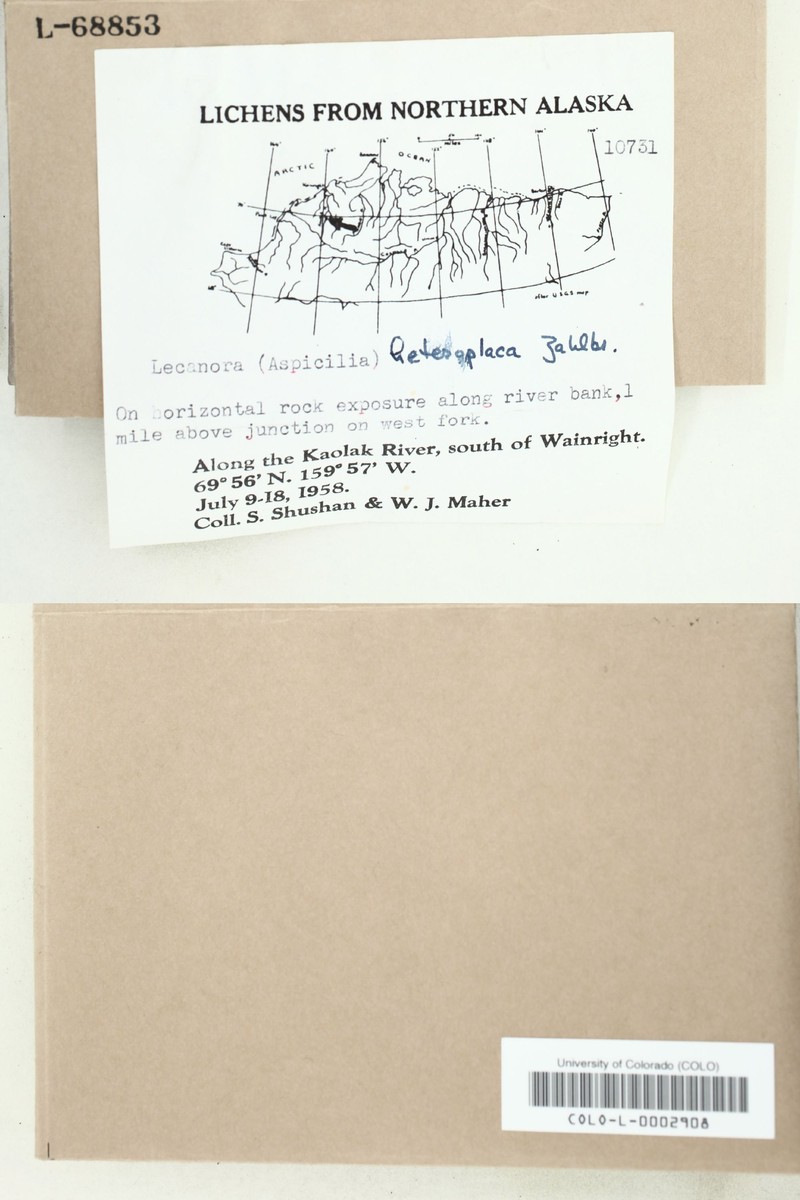 L-68853
LICHENS FROM NORTHERN ALASKA
10731
ARCTIC OCEAN
after USGS map
Lecanora (Aspicilia) heteroplaca Zahlbr.
On orizontal rock exposure along river bank,1
mile above junction on west fork.
Along the Kaolak River, south of Wainright.
69° 56' N. 159° 57' W.
July 9-18, 1958.
Coll. S. Shushan & W. J. Maher
University of Colorado (COLO)
COLO-L-0002908